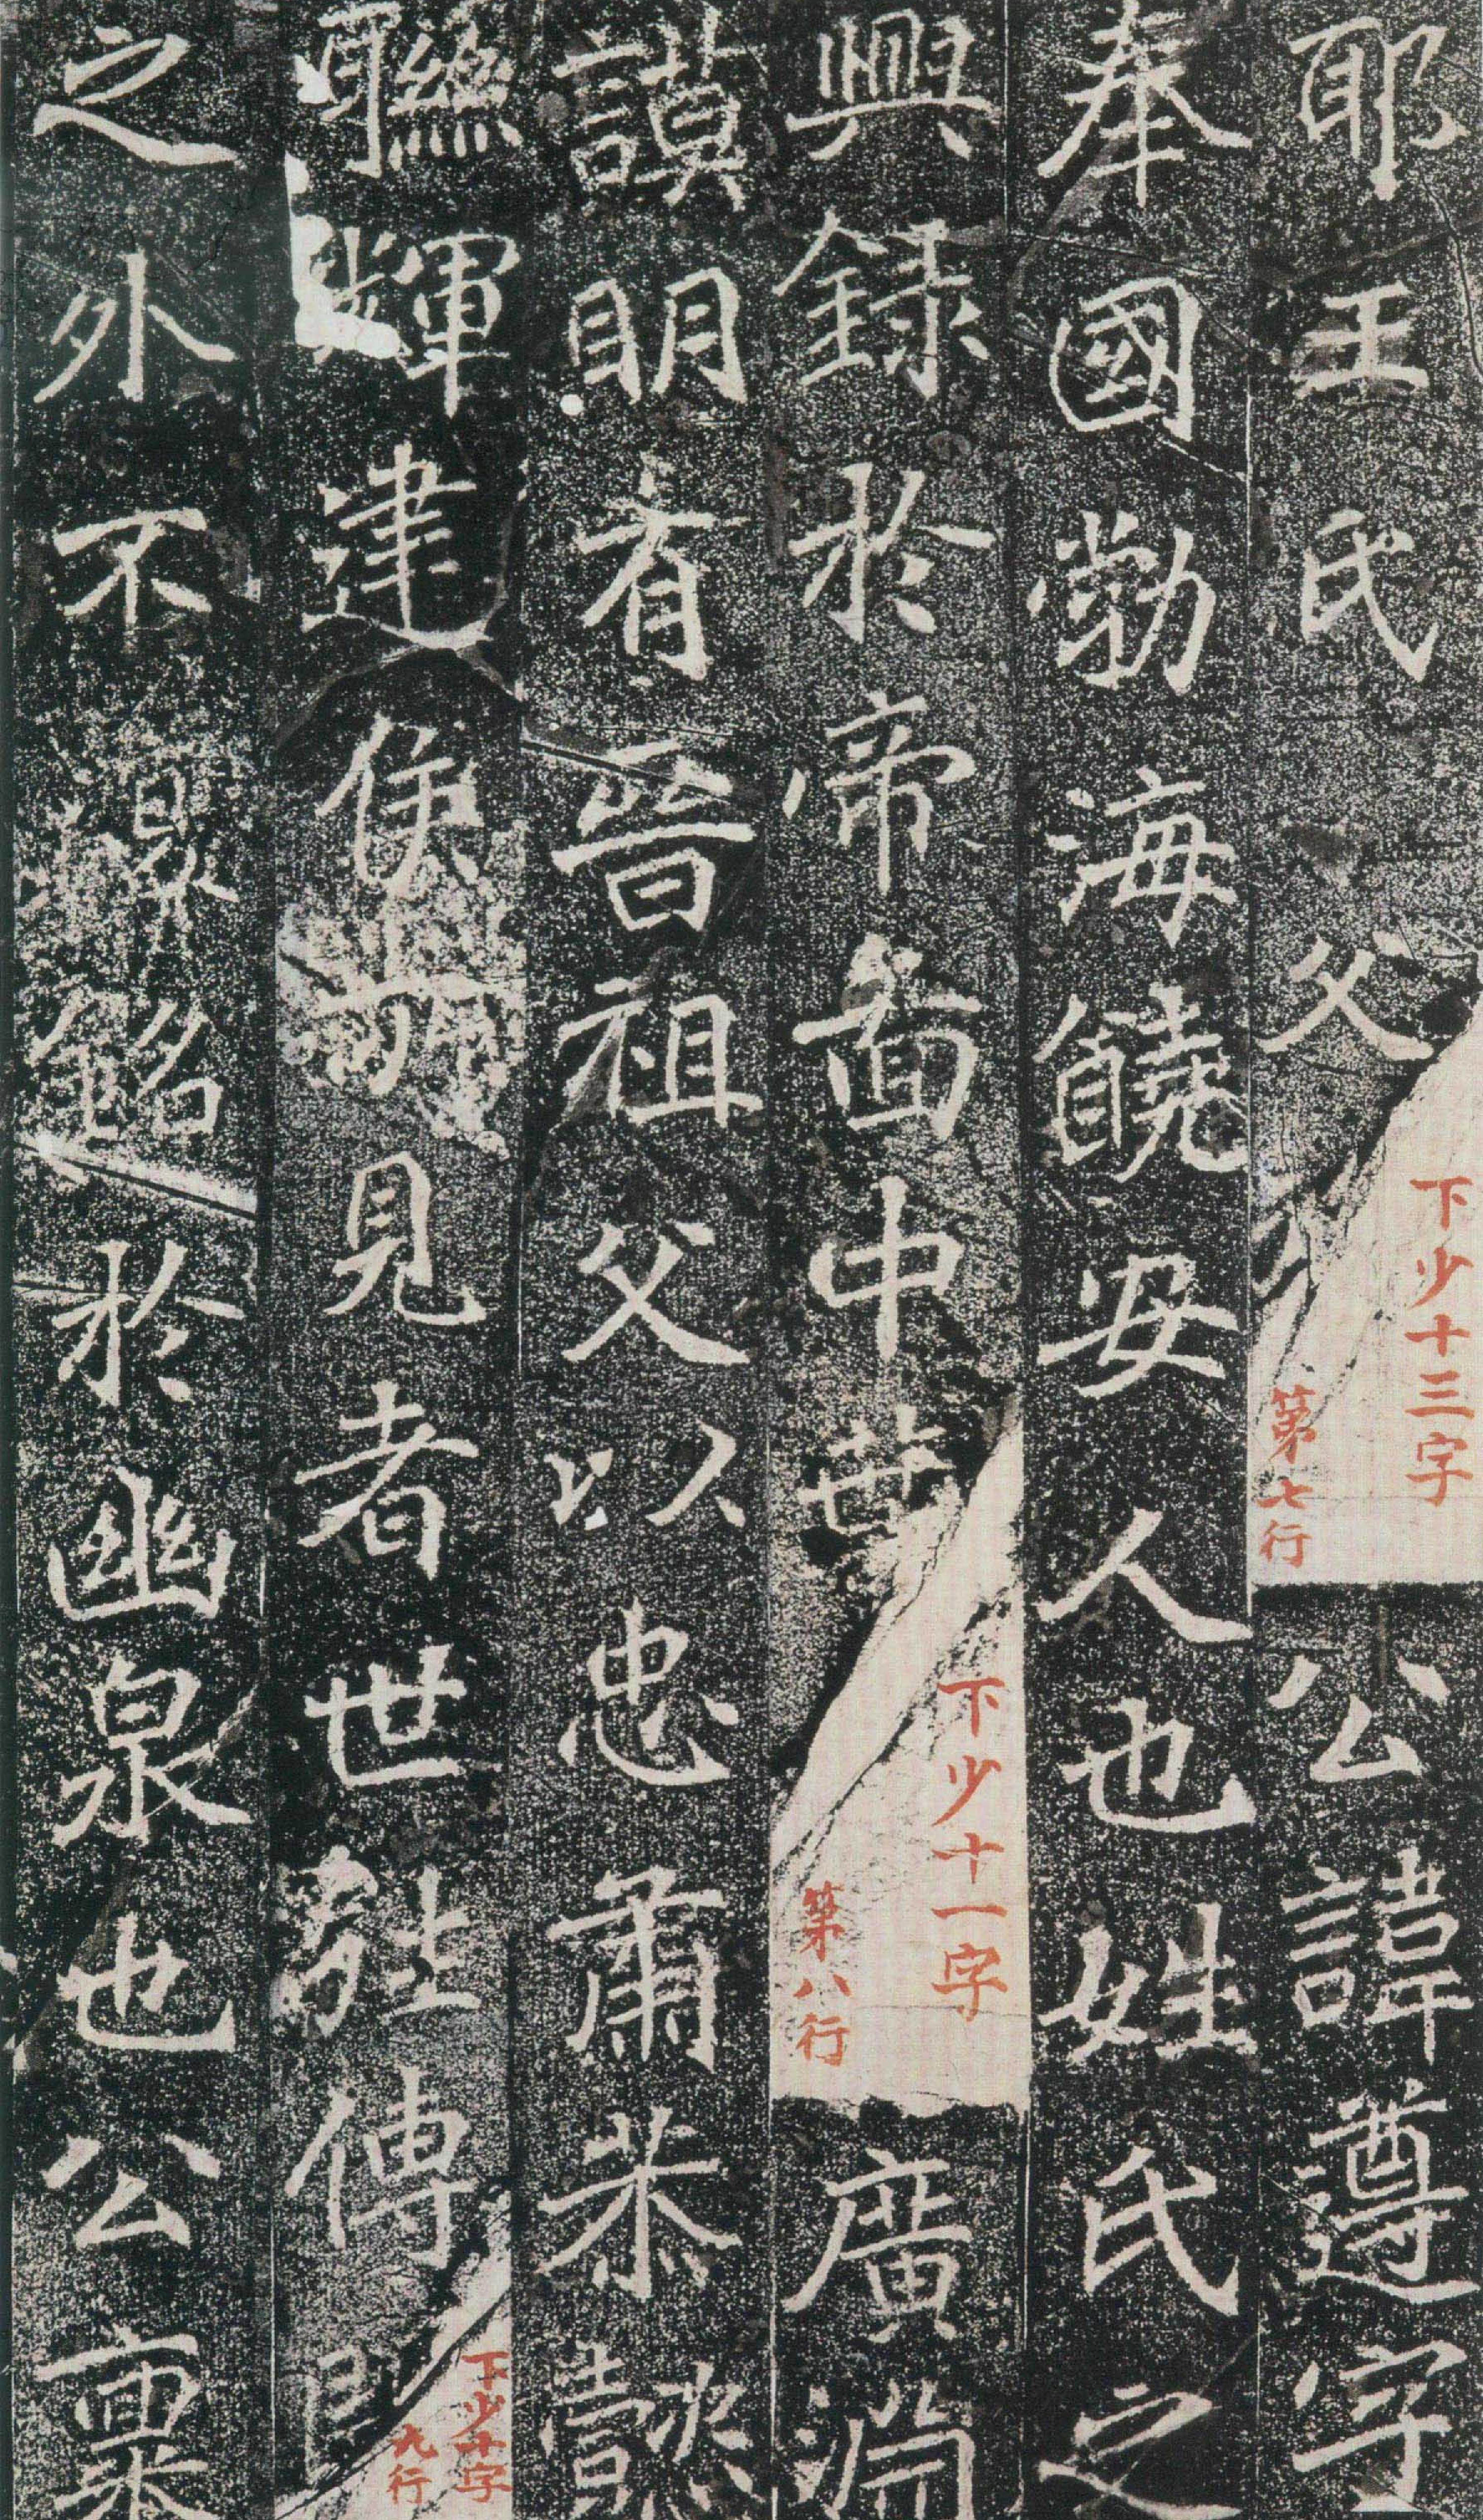 耶王氏父
下少十三字
第七行
公諱遵字
奉國勃海饒安人也姓氏之
興録於帝啚中葉
下少十一字
第八行
廣淵
謨明有晉祖父以忠肅恭懿
聯輝建侯見者世傅
下少十字
九行
之外不銘於幽泉也公稟